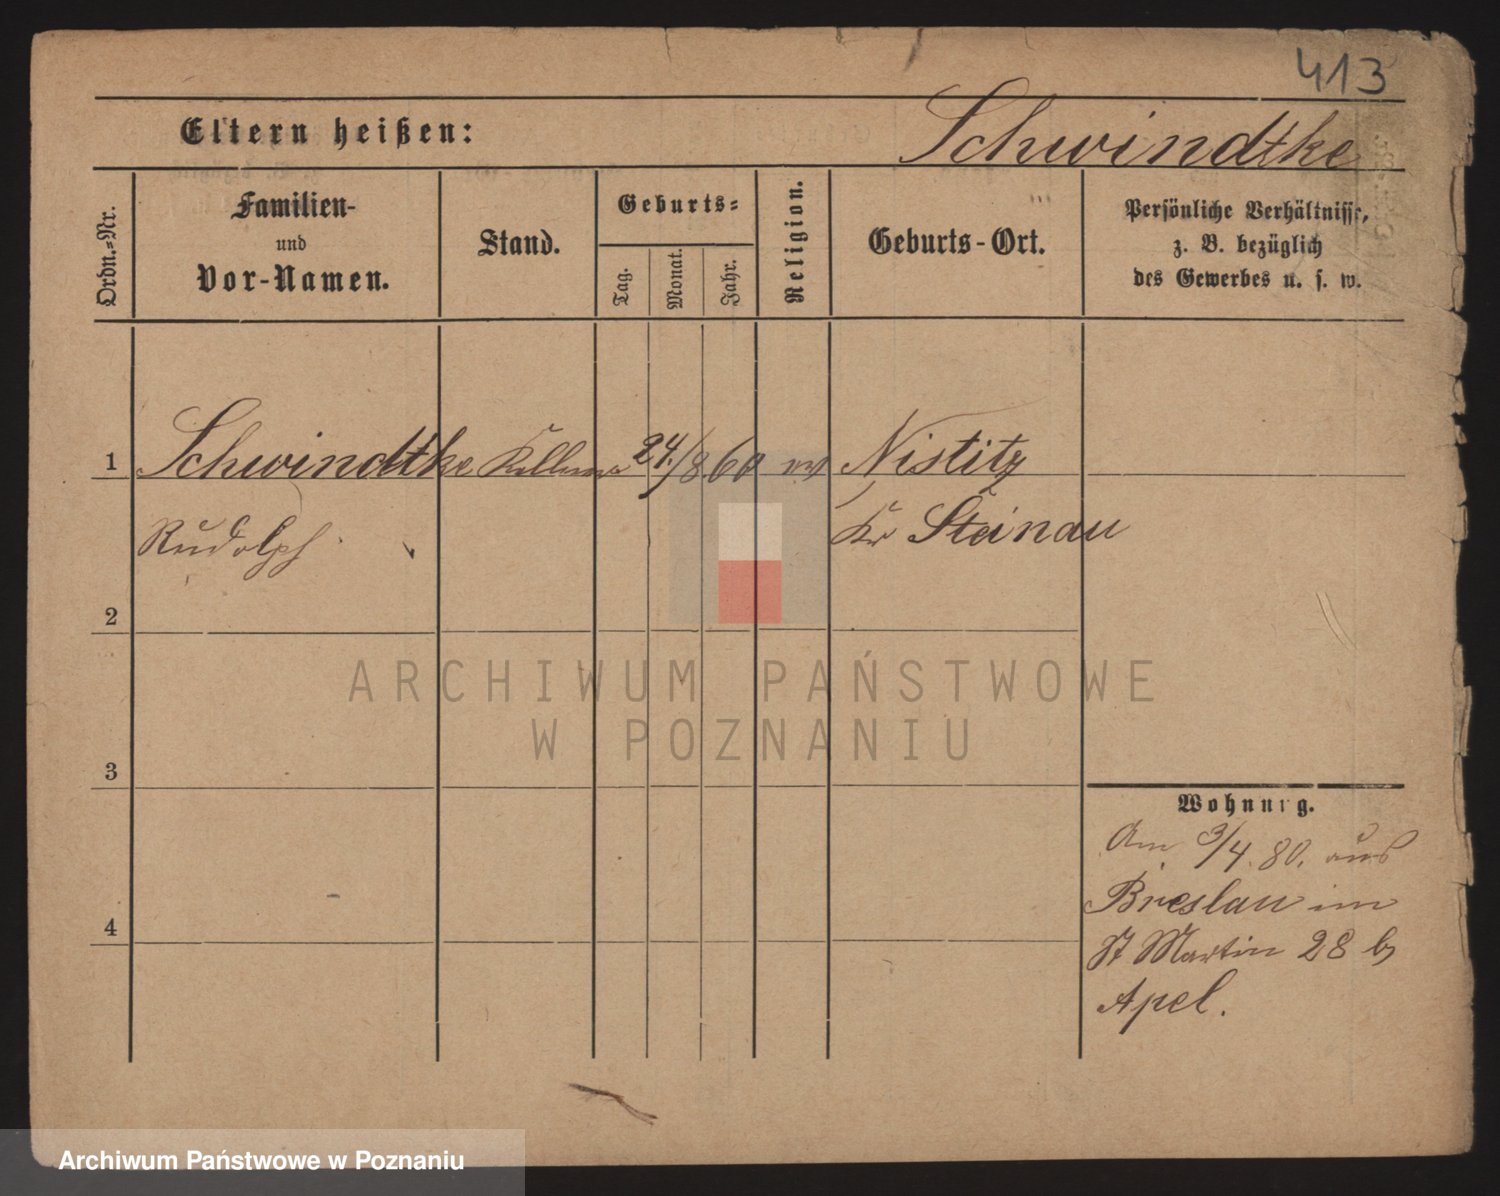 413
Eltern heißen:
Schwindtke
Ordn.=Nr.
Familien-
und
Vor-Namen.
Stand.
Geburts=
Tag.
Monat.
Jahr.
Religion.
Geburts-Ort.
Persönliche Verhältnisse,
z. B. bezüglich
des Gewerbes u. s. w.
1 Schwindtke Kellner 24./8 60 Nistitz
Rudolph Kr Steinau
2
3
4
Wohnung.
Am 3/4. 80. aus
Breslau im
St Martin 28 b
Apel.
ARCHIWUM PAŃSTWOWE
W POZNANIU
Archiwum Państwowe w Poznaniu